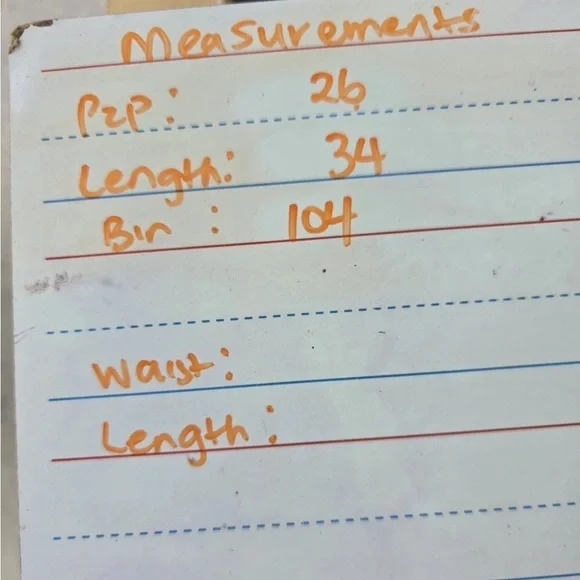 Measurements
P2P: 26
Length: 34
Bin : 104
Waist:
Length: